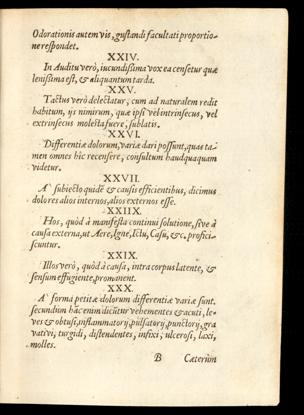 Odorationis autem vis, gustandi facultati proportio-
ne respondet.
XXIV.
In Auditu verò, iucundißima vox ea censetur quæ
lenißima est, & aliquantum tarda.
XXV.
Tactus verò delectatur, cum ad naturalem redit
habitum, ijs nimirum, quæ ipsi vel intrinsecus, vel
extrinsecus molesta fuere, sublatis.
XXVI.
Differentiæ dolorum, variæ dari possunt, quas ta-
men omnes hîc recensere, consultum haudquaquam
videtur.
XXVII.
A` subiecto quidẽ & causis efficientibus, dicimus
dolores alios internos, alios externos esse.
XXIIX.
Hos, quòd à manifesta continui solutione, sive à
causa externa, ut Aere, Igne, Ictu, Casu, &c. profici-
scuntur.
XXIX.
Illos verò, quòd à causa, intra corpus latente, &
sensum effugiente, promanent.
XXX.
A` forma petitæ dolorum differentiæ variæ sunt.
secundùm hac enim dicũtur vehementes & acuti, le-
ves & obtusi, inflammatorij, pulsatorij, punctorij, gra
vativi, turgidi, distendentes, infixi, ulcerosi, laxi,
molles.
B Cæterùm